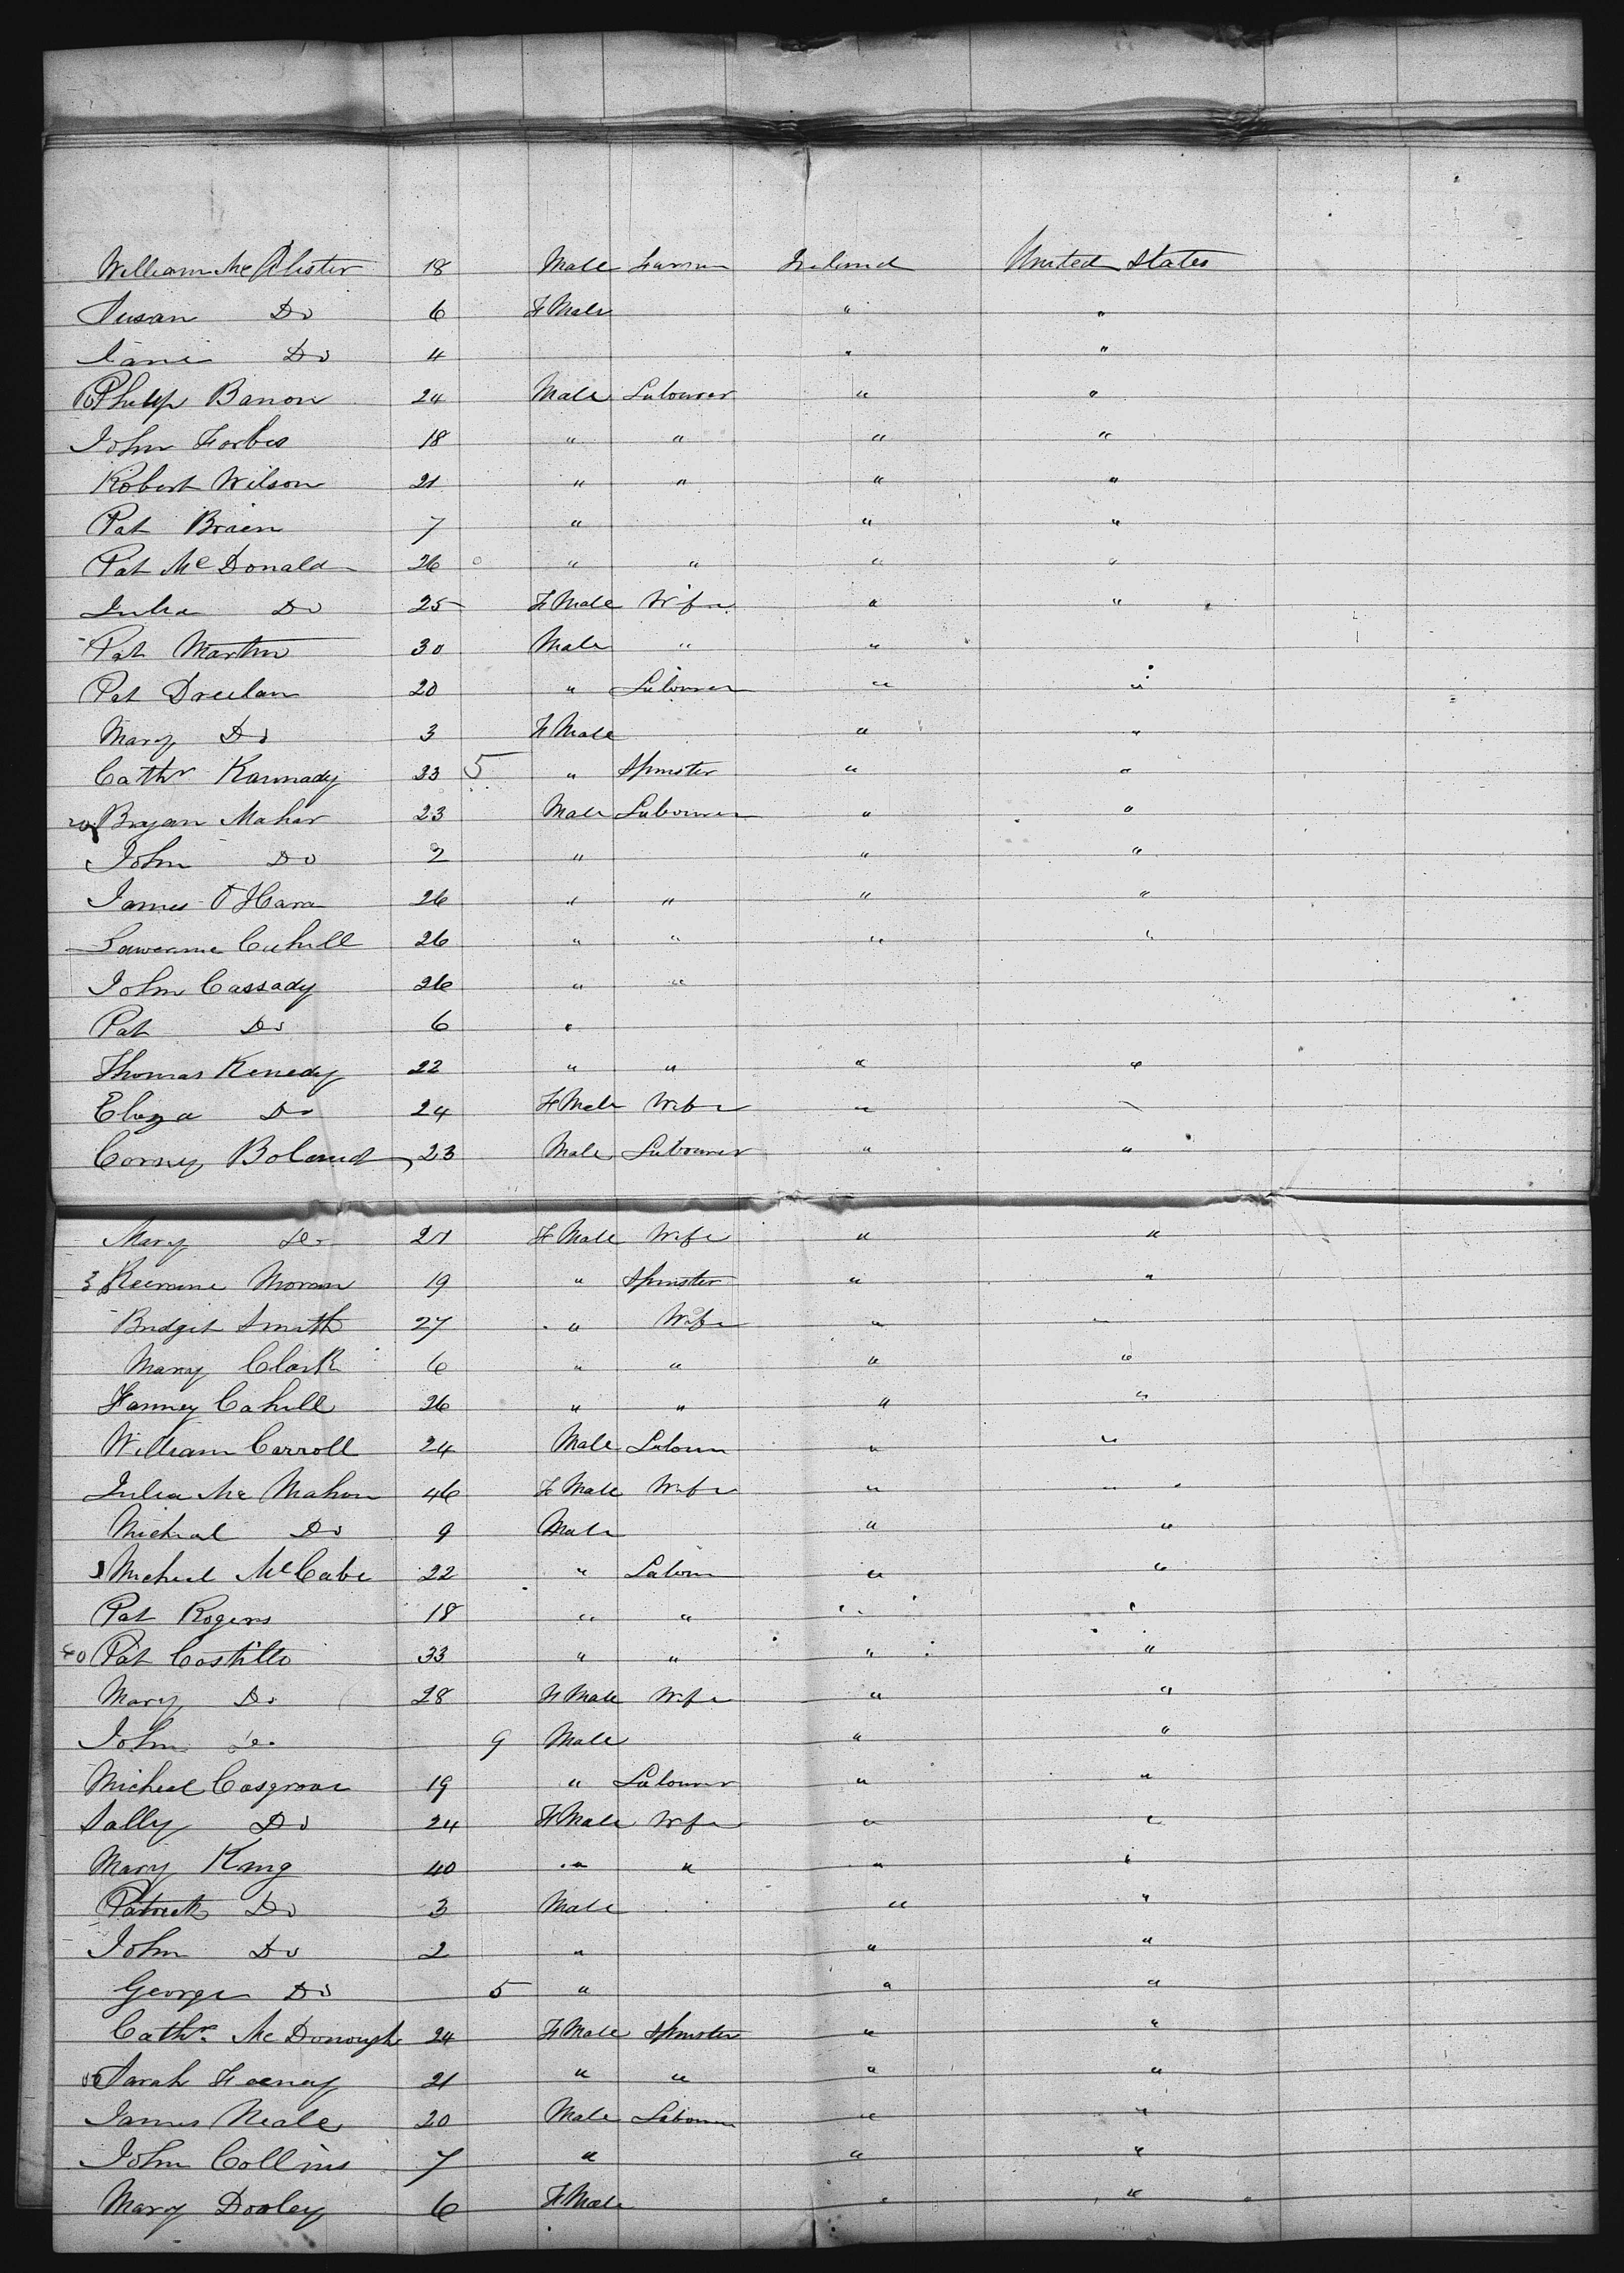 William Mc Alister 18 Male Farmer Ireland United States
Susan Do 6 F Male " "
Jane Do 4 " "
10 Philip Banon 24 Male Labourer " "
John Forbes 18 " " " "
Robert Wilson 21 " " " "
Pat Brien 7 " " "
Pat Mc Donald 26 " " " "
Julia Do 25 F Male Wife " "
Pat Martin 30 Male " "
Pat Dreelan 20 " Labourer " "
Mary Do 3 F Male " "
Cathr Kannady 33 5 " Spinster " "
20 Bryan Mahar 23 Male Labourer " "
John Do 2 " " "
James O Hara 26 " " " "
Lawrence Cahill 26 " " " "
John Cassady 26 " "
Pat Do 6 "
Thomas Kenedy 22 " " " "
Eliza Do 24 F Male Wife " "
Corney Boland 23 Male Labourer " "
Mary Do 21 F Male Wife " "
3 Moran 19 " Spinster " "
Bridget Smith 27 " Wife " "
Mary Clark 6 " " " "
Fanney Cahill 26 " " " "
William Carroll 24 Male Labour " "
Julia Mc Mahon 46 F Male Wife " "
Micheal Do 9 Male " "
Micheal McCabe 22 " Labour " "
Pat Rogers 18 " " " "
40 Pat Costillo 33 " " " "
Mary Do 28 F Male Wife " "
John Do 9 Male " "
Micheal Cosgrove 19 " Labourer " "
Sally Do 24 F Male Wife " "
Mary Kang 40 " " " "
Patrick Do 3 Male " "
John Do 2 " " "
George Do 5 " " "
Cathr. Mc Donough 24 F Male Spinster " "
50 Sarah Feeney 21 " " " "
James Neale 20 Male Labour " "
John Collins 7 " " "
Mary Dooley 6 F Male " "